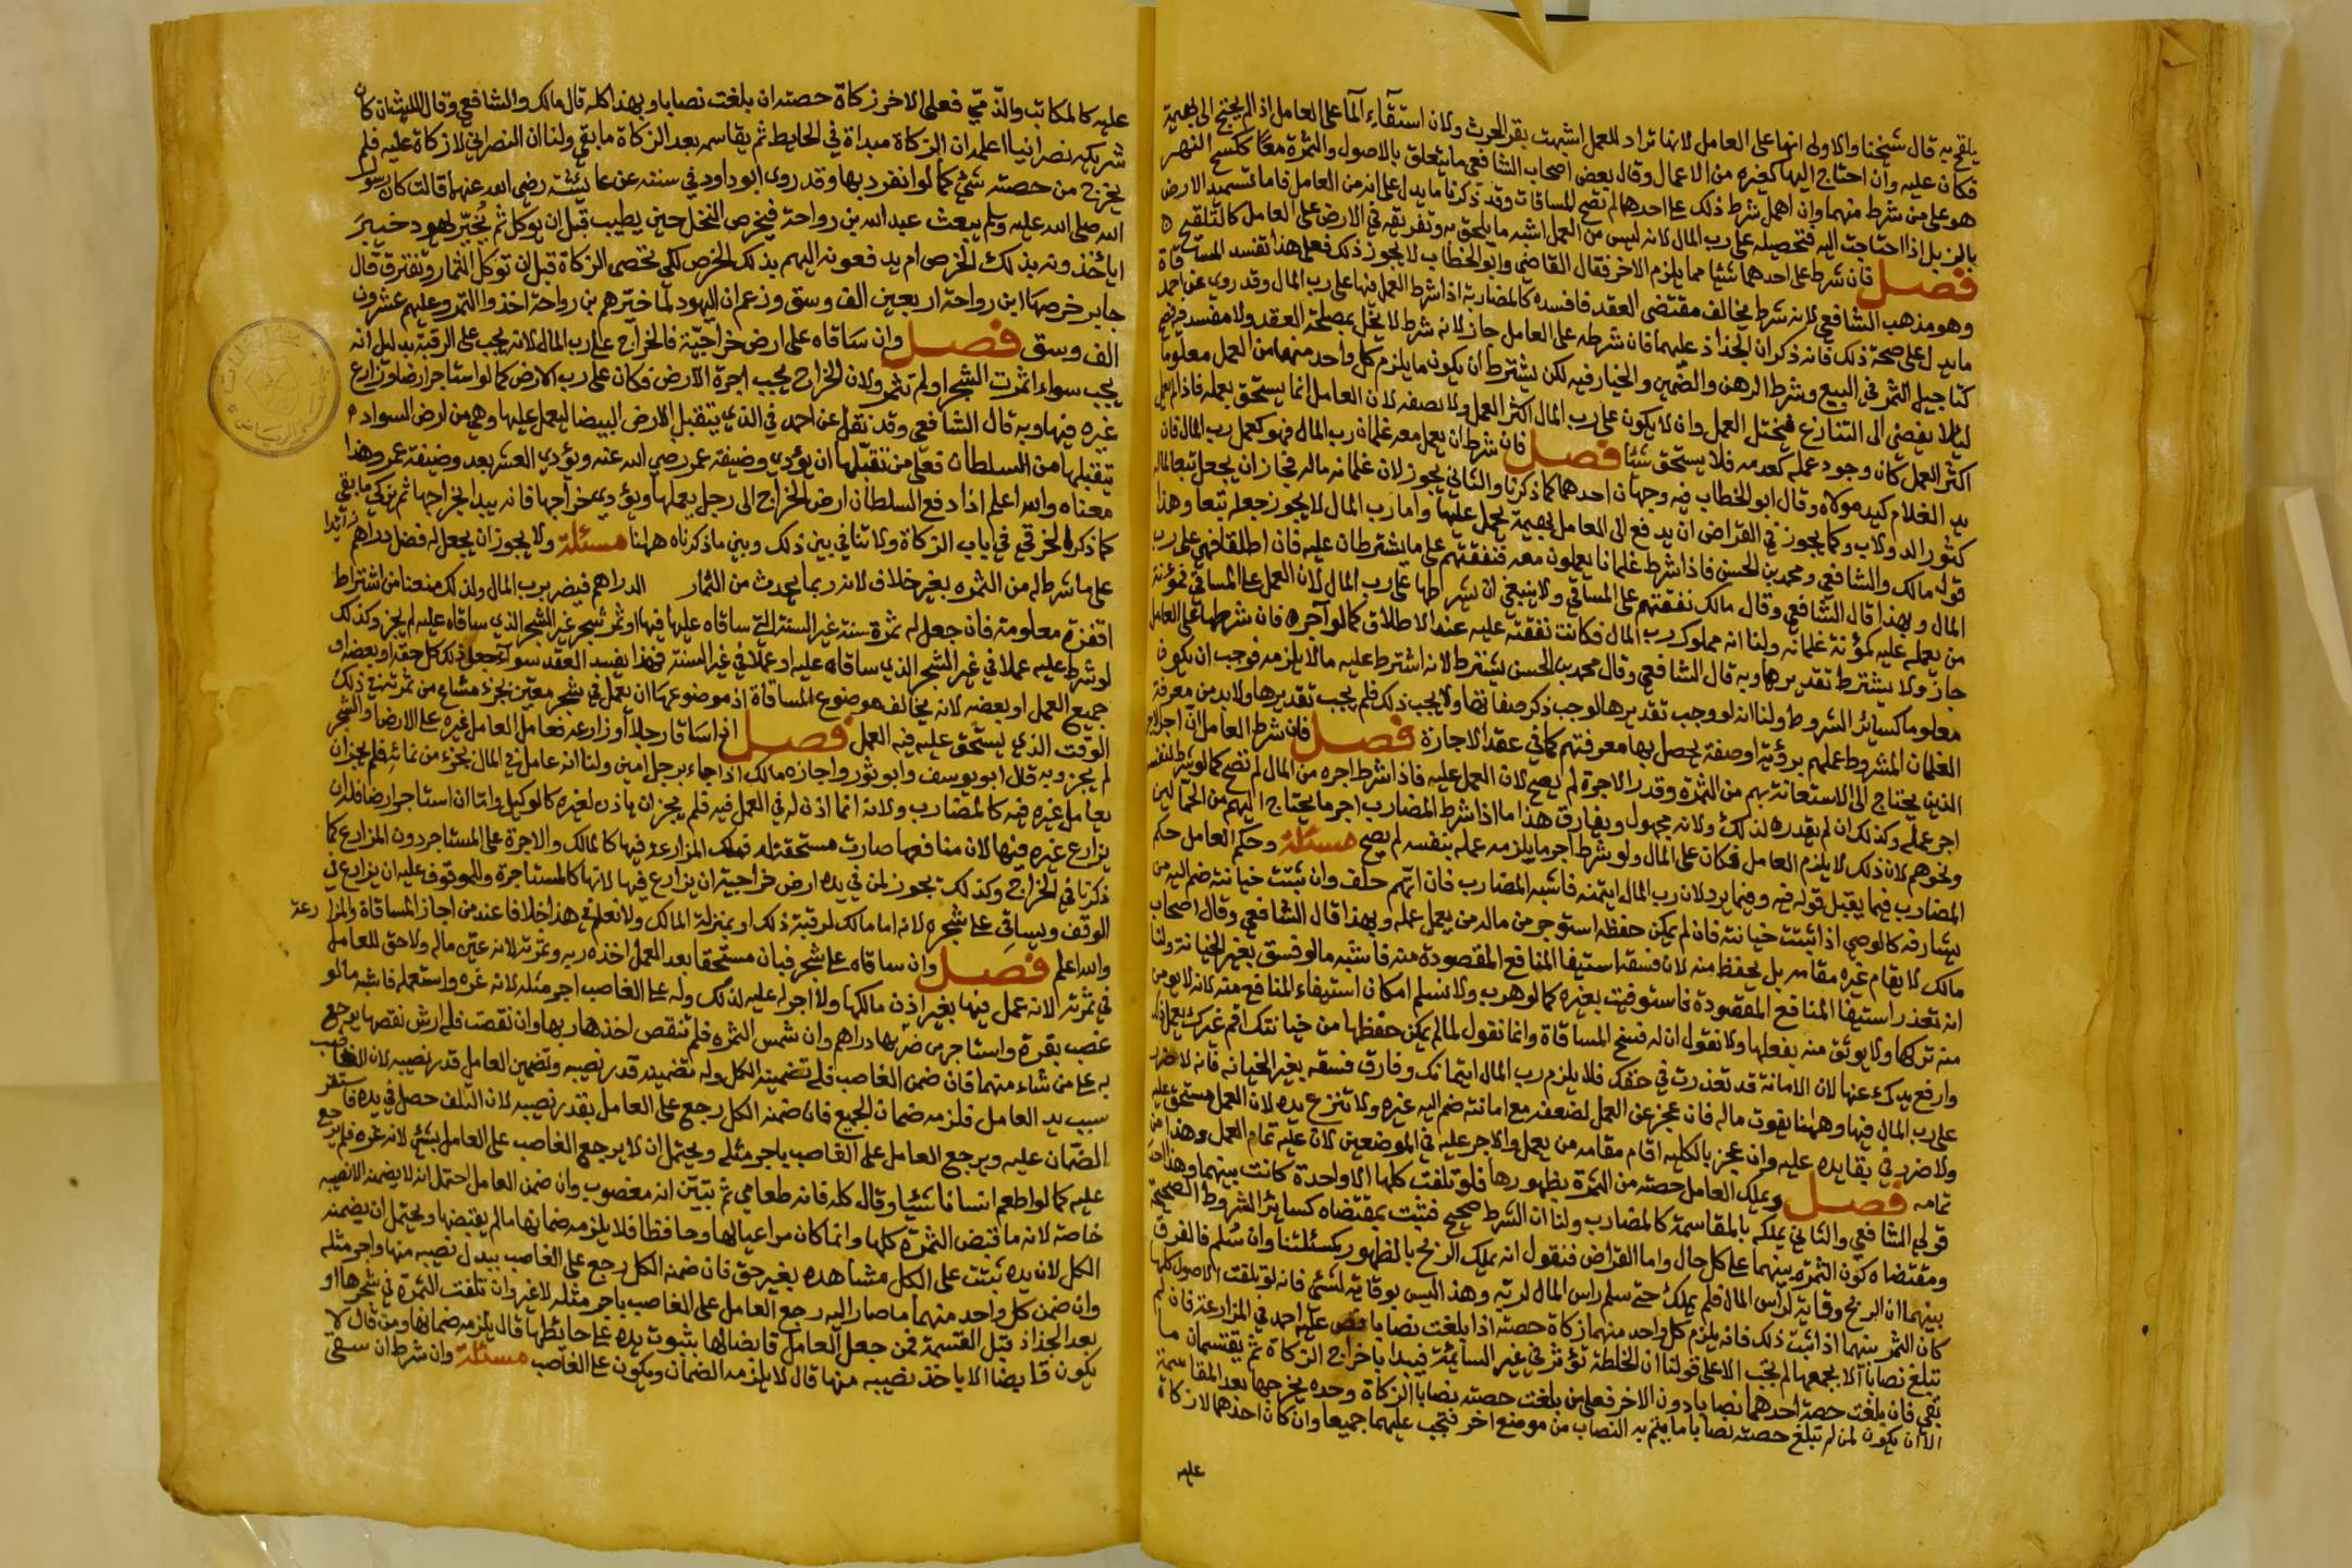 يلقح به قال شيخنا والاولى انها على العامل لانها تراد للعمل اشبهت بقر الحرث ولان استقاء الما على العامل اذا لم يحتج الى بهيمة
فكان عليه وان احتاج اليها كغيره من الاعمال وقال بعض اصحاب الشافعي ما يتعلق بالاصول والثمرة معا ككسح النهر
هو على من شرط منهما وان اهمل شرط ذلك على احدهما لم تصح المساقات وقد ذكرنا ما يدل على انه من العامل فاما تسميد الارض
بالزبل اذا احتاجت اليه فتحصيله على رب المال لانه ليس من العمل اشبه ما يلقح به وتفريقه في الارض على العامل كالتلقيح
فصل فان شرط على احدهما شيئا مما يلزم الاخر فقال القاضي وابو الخطاب لا يجوز ذلك فعلى هذا تفسد المساقاة
وهو مذهب الشافعي لانه شرط يخالف مقتضى العقد فافسده كالمضاربة اذا شرط العمل فيها على رب المال وقد روي عن احمد
ما يدل على صحة ذلك فانه ذكر ان الجذاذ عليهما فان شرطه على العامل جاز لانه شرط لا يخل بمصلحة العقد ولا مفسدة فيه فصح
كتاجيل الثمن في البيع وشرط الرهن والضمين والخيار فيه لكن يشترط ان يكون ما يلزم كل واحد منهما من العمل معلوما
ليلا يفضي الى التنازع فيختل العمل وان لا يكون على رب المال اكثر العمل ولا نصفه لان العامل انما يستحق بعمله فاذا لم يعمل
اكثر العمل كان وجود عمله كعدمه فلا يستحق شيئا فصل فان شرط ان يعمل معه غلمان رب المال فهو كعمل رب المال فان
يد الغلام كيد مولاه وقال ابو الخطاب فيه وجهان احدهما كما ذكرنا والثاني يجوز لان غلمانه ماله فجاز ان يجعل تبعا لماله
كثور الدولاب وكما يجوز في القراض ان يدفع الى العامل بهيمة يحمل عليها واما رب المال لا يجوز جعله تبعا وهذا
قول مالك والشافعي ومحمد بن الحسن فاذا شرط غلمانا يعملون معه فنفقتهم على ما يشترطان عليه فان اطلقا فهي على رب
المال وبهذا قال الشافعي وقال مالك نفقتهم على المساقي ولا ينبغي ان يشرطها على رب المال لان العمل على المساقي فمؤنة
من يعمله عليه كمؤنة غلمانه ولنا انه مملوك رب المال فكانت نفقته عليه عند الاطلاق كما لو آجره فان شرطها على العامل
جاز ولا يشترط تقديرها وبه قال الشافعي وقال محمد بن الحسن يشترط لانه اشترط عليه ما لا يلزمه فوجب ان يكون
معلوما كسائر الشروط ولنا انه لو وجب تقديرها لوجب ذكر صفاتها ولا يجب ذلك فلم يجب تقديرها ولا بد من معرفة
الغلمان المشروط عملهم برؤية او صفة يحصل بها معرفتهم كما في عقد الاجارة فصل فان شرط العامل ان اجر الاجراء
الذين يحتاج الى الاستعانة بهم من الثمرة وقدر الاجرة لم يصح لان العمل عليه فاذا شرط اجره من المال لم تصح كما لو شرط لنفسه
اجر عمله وكذلك ان لم يقدره لذلك ولانه مجهول ويفارق هذا ما اذا شرط المضارب اجر ما يحتاج اليهم من الحمالين
ونحوهم لان ذلك لا يلزم العامل فكان على المال ولو شرط اجر ما يلزمه عمله بنفسه لم يصح مسئلة وحكم العامل حكم
المضارب فيما يقبل قوله فيه وفيما يرد لان رب المال ايتمنه فاشبه المضارب فان اتهم حلف وان ثبتت خيانته ضم اليه من
يشارفه كالوصي اذا ثبتت خيانته فان لم يمكن حفظه استؤجر من ماله من يعمل عمله وبهذا قال الشافعي وقال اصحاب
مالك لا يقام غيره مقامه بل يحفظ منه لان فسقه استيفا المنافع المقصودة منه فاشبه ما لو فسق بغير الخيانة ولنا
انه تعذر استيفا المنافع المقصودة فاستوفيت بغيره كما لو هرب ولا نسلم امكان استيفاء المنافع منه لانه لا يومن
منه تركها ولا يوثق منه بفعلها ولا نقول ان له فسخ المساقاة وانما نقول لما لم يمكن حفظها من خيانتك اقم غيرك يعمل ذلك
وارفع يدك عنها لان الامانة قد تعذرت في حقك فلا يلزم رب المال ايتمانك وفارق فسقه بغير الخيانة فانه لا ضرر
على رب المال فيها وههنا يفوت ماله فان عجز عن العمل لضعفه مع امانته ضم اليه غيره ولا تنزع يده لان العمل مستحق عليه
ولا ضرر في بقا يده عليه وان عجز بالكلية اقام مقامه من يعمل والاجر عليه في الموضعين لان عليه تمام العمل وهذا من
تمامه فصل ويملك العامل حصته من الثمرة بظهورها فلو تلفت كلها الا واحدة كانت بينهما وهذا احد
قولي الشافعي والثاني يملكه بالمقاسمة كالمضارب ولنا ان الشرط صحيح فثبت بمقتضاه كسائر الشروط الصحيحة
ومقتضاه كون الثمرة بينهما على كل حال واما القراض فنقول انه يملك الربح بالظهور كمسئلتنا وان سلم فالفرق
بينهما ان الربح وقاية لراس المال فلم يملك حتى سلم راس المال لربه وهذا ليس بوقاية لشئ فانه لو تلفت الاصول كلها
كان الثمر بينهما اذا ثبت ذلك فانه يلزم كل واحد منهما زكاة حصته اذا بلغت نصابا نص عليه احمد في المزارعة فان لم
تبلغ نصابا الا بجمعهما لم تجب الا على قولنا ان الخلطة تؤثر في غير السائمة فيبدا باخراج الزكاة ثم يقتسمان ما
بقي فان بلغت حصة احدهما نصابا دون الاخر فعلى من بلغت حصته نصابا الزكاة وحده يخرجها بعد المقاسمة
الا ان يكون لمن لم تبلغ حصته نصابا ما يتم به النصاب من موضع اخر فتجب عليهما جميعا وان كان احدهما لا زكاة
عليه
عليه كالمكاتب والذمي فعلى الاخر زكاة حصته ان بلغت نصابا وبهذا كله قال مالك والشافعي وقال الليث ان كان
شريكه نصرانيا اعلمه ان الزكاة مبداة في الحايط ثم يقاسمه بعد الزكاة ما بقي ولنا ان النصراني لا زكاة عليه فلم
يخرج من حصته شئ كما لو انفرد بها وقد روى ابو داود في سننه عن عايشة رضي الله عنها قالت كان رسول
الله صلى الله عليه وسلم يبعث عبد الله بن رواحة فيخرص النخل حين يطيب قبل ان يوكل ثم يخير يهود خيبر
اياخذونه بذلك الخرص ام يدفعونه اليهم بذلك الخرص لكي تحصى الزكاة قبل ان توكل الثمار وتفترق قال
جابر خرصها ابن رواحة اربعين الف وسق وزعم ان اليهود لما خيرهم بن رواحة اخذوا التمر وعليهم عشرون
الف وسق فصل وان ساقاه على ارض خراجية فالخراج على رب المال لانه يجب على الرقبة بدليل انه
يجب سواء اثمرت الشجر او لم تثمر ولان الخراج يجب اجرة الارض فكان على رب الارض كما لو استاجر ارضا وزارع
غيره فيها وبه قال الشافعي وقد نقل عن احمد في الذي يتقبل الارض البيضا ليعمل عليها وهي من ارض السواد
يتقبلها من السلطان فعلى من تقبلها ان يؤدي وضيفة عمر رضي الله عنه ويؤدي العشر بعد وضيفة عمر وهذا
معناه والله اعلم اذا دفع السلطان ارض الخراج الى رجل يعملها ويؤدي خراجها فانه يبدا بخراجها ثم يزكي ما بقي
كما ذكر الخرقي في باب الزكاة ولا تنافي بين ذلك وبين ما ذكرناه ههنا مسئلة ولا يجوز ان يجعل له فضل دراهم زايدا
على ما شرط له من الثمره بغير خلاف لانه ربما يحدث من النماء الدراهم فيضر برب المال ولذلك منعنا من اشتراط
اقفزة معلومة فان جعل له ثمرة سنة غير السنة التي ساقاه عليها فيها او ثمر شجر غير الشجر الذي ساقاه عليه لم يجز وكذلك
لو شرط عليه عملا في غير الشجر الذي ساقاه عليه او عملا في غير السنة فهذا يفسد العقد سواء جعل ذلك كل حقه او بعضه او
جميع العمل او بعضه لانه يخالف موضوع المساقاة اذ موضوعها ان يعمل في شجر معين بجزء مشاع من ثمرته في ذلك
الوقت الذي يستحق عليه فيه العمل فصل اذا ساقا رجلا او زارعه فعامل العامل غيره على الارض او الشجر
لم يجز وبه قال ابو يوسف وابو ثور واجازه مالك اذا جاء برجل امين ولنا انه عامل في المال بجزء من نمائه فلم يجز ان
يعامل غيره فيه كالمضارب ولانه انما اذن له في العمل فيه فلم يجز ان ياذن لغيره كالوكيل واما ان استاجر ارضا فله ان
يزارع غيره فيها لان منافعها صارت مستحقة له فملك المزارعة فيها كالمالك والاجرة على المستاجر دون المزارع كما
ذكرنا في الخراج وكذلك يجوز لمن في يده ارض خراجية ان يزارع فيها لانها كالمستاجرة وللموقوف عليه ان يزارع في
الوقف ويساقي على شجره لانه اما مالك لرقبة ذلك او بمنزلة المالك ولا نعلم في هذا خلافا عند من اجاز المساقاة والمزارعة
والله اعلم فصل وان ساقاه على شجر فبان مستحقا بعد العمل اخذه ربه وثمرته لانه عين ماله ولا حق للعامل
في ثمرته لانه عمل فيها بغير اذن مالكها ولا اجر له عليه لذلك وله على الغاصب اجر مثله لانه غره واستعمله فاشبه ما لو
غصب نقرة واستاجر من ضربها دراهم وان شمس الثمرة فلم تنقص اخذها ربها وان نقصت فله ارش نقصها يرجع
به على من شاء منهما فان ضمن الغاصب فله تضمينه الكل وله تضمينه قدر نصيبه وتضمين العامل قدر نصيبه لان الغاصب
سبب يد العامل فلزمه ضمان الجميع فان ضمنه الكل رجع على العامل بقدر نصيبه لان التلف حصل في يده فاستقر
الضمان عليه ويرجع العامل على الغاصب باجر مثله ويحتمل ان لا يرجع الغاصب على العامل بشئ لانه غره فلم يرجع
عليه كما لو اطعم انسانا شيئا وقال كله فانه طعامي ثم تبين انه مغصوب وان ضمن العامل احتمل انه لا يضمنه الا نصيبه
خاصة لانه ما قبض الثمرة كلها وانما كان مراعيا لها وحافظا فلا يلزمه ضمانها ما لم يقبضها ويحتمل ان يضمنه
الكل لان يده ثبتت على الكل مشاهده بغير حق فان ضمنه الكل رجع على الغاصب ببدل نصيبه منها واجر مثله
وان ضمن كل واحد منهما ما صار اليه رجع العامل على الغاصب باجر مثله لا غير وان تلفت الثمرة في شجرها او
بعد الجذاذ قبل القسمة فمن جعل العامل قابضا لها بثبوت يده على حائطها قال يلزمه ضمانها ومن قال لا
يكون قابضا الا باخذ نصيبه منها قال لا يلزمه الضمان ويكون على الغاصب مسئلة وان شرط ان سقى